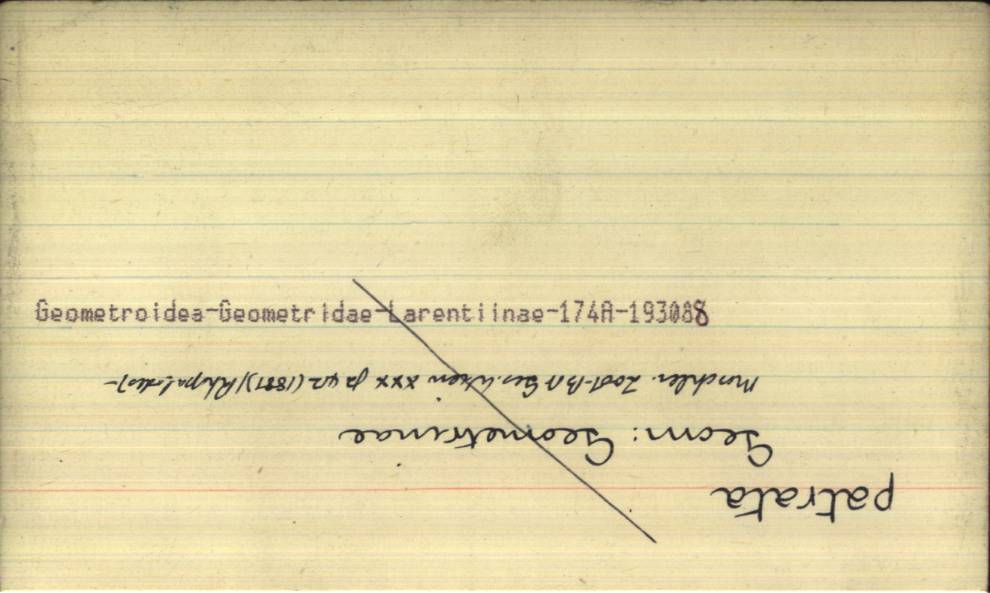 Geometroidea-Geometridae-Larentiinae-174A-193088
patrata
Geom: Geometrinae
Moschler. Zool-Bot Ges. Wien xxx p 412 (1881)